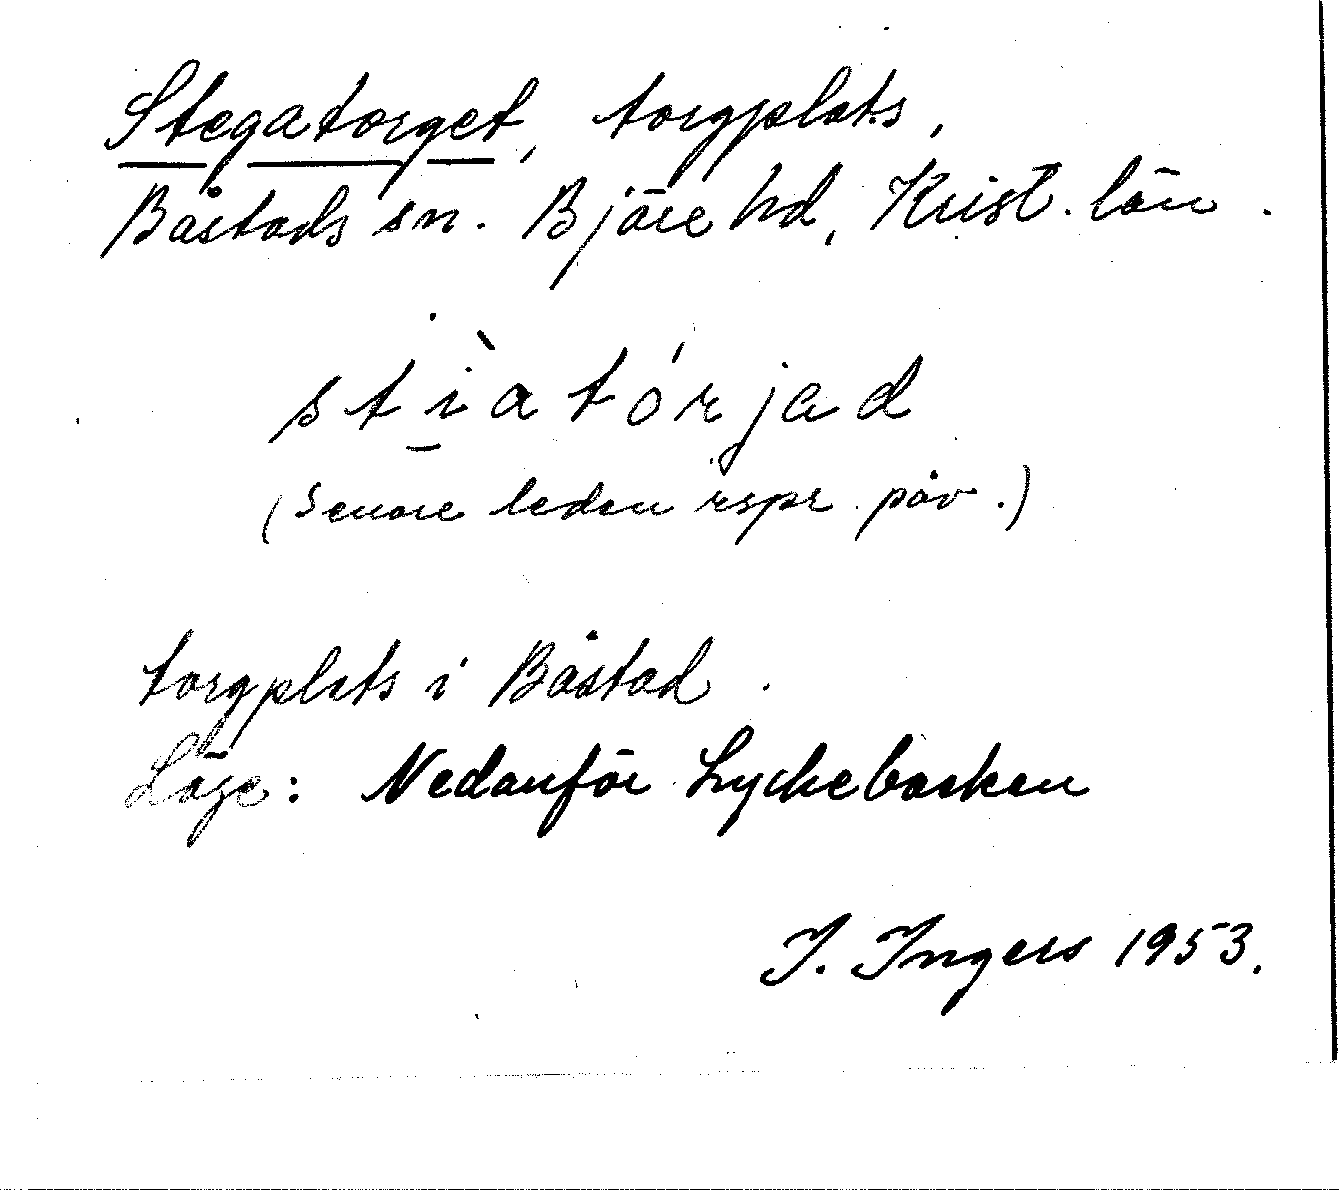 Stegatorget, torgplats,
Båstads sn. Bjäre hd, Krist. län.
stì̱atórjad
(Senare leden rspr. påv.)
torgplats i Båstad.
Läge: Nedanför Lyckebacken
I. Ingers 1953.